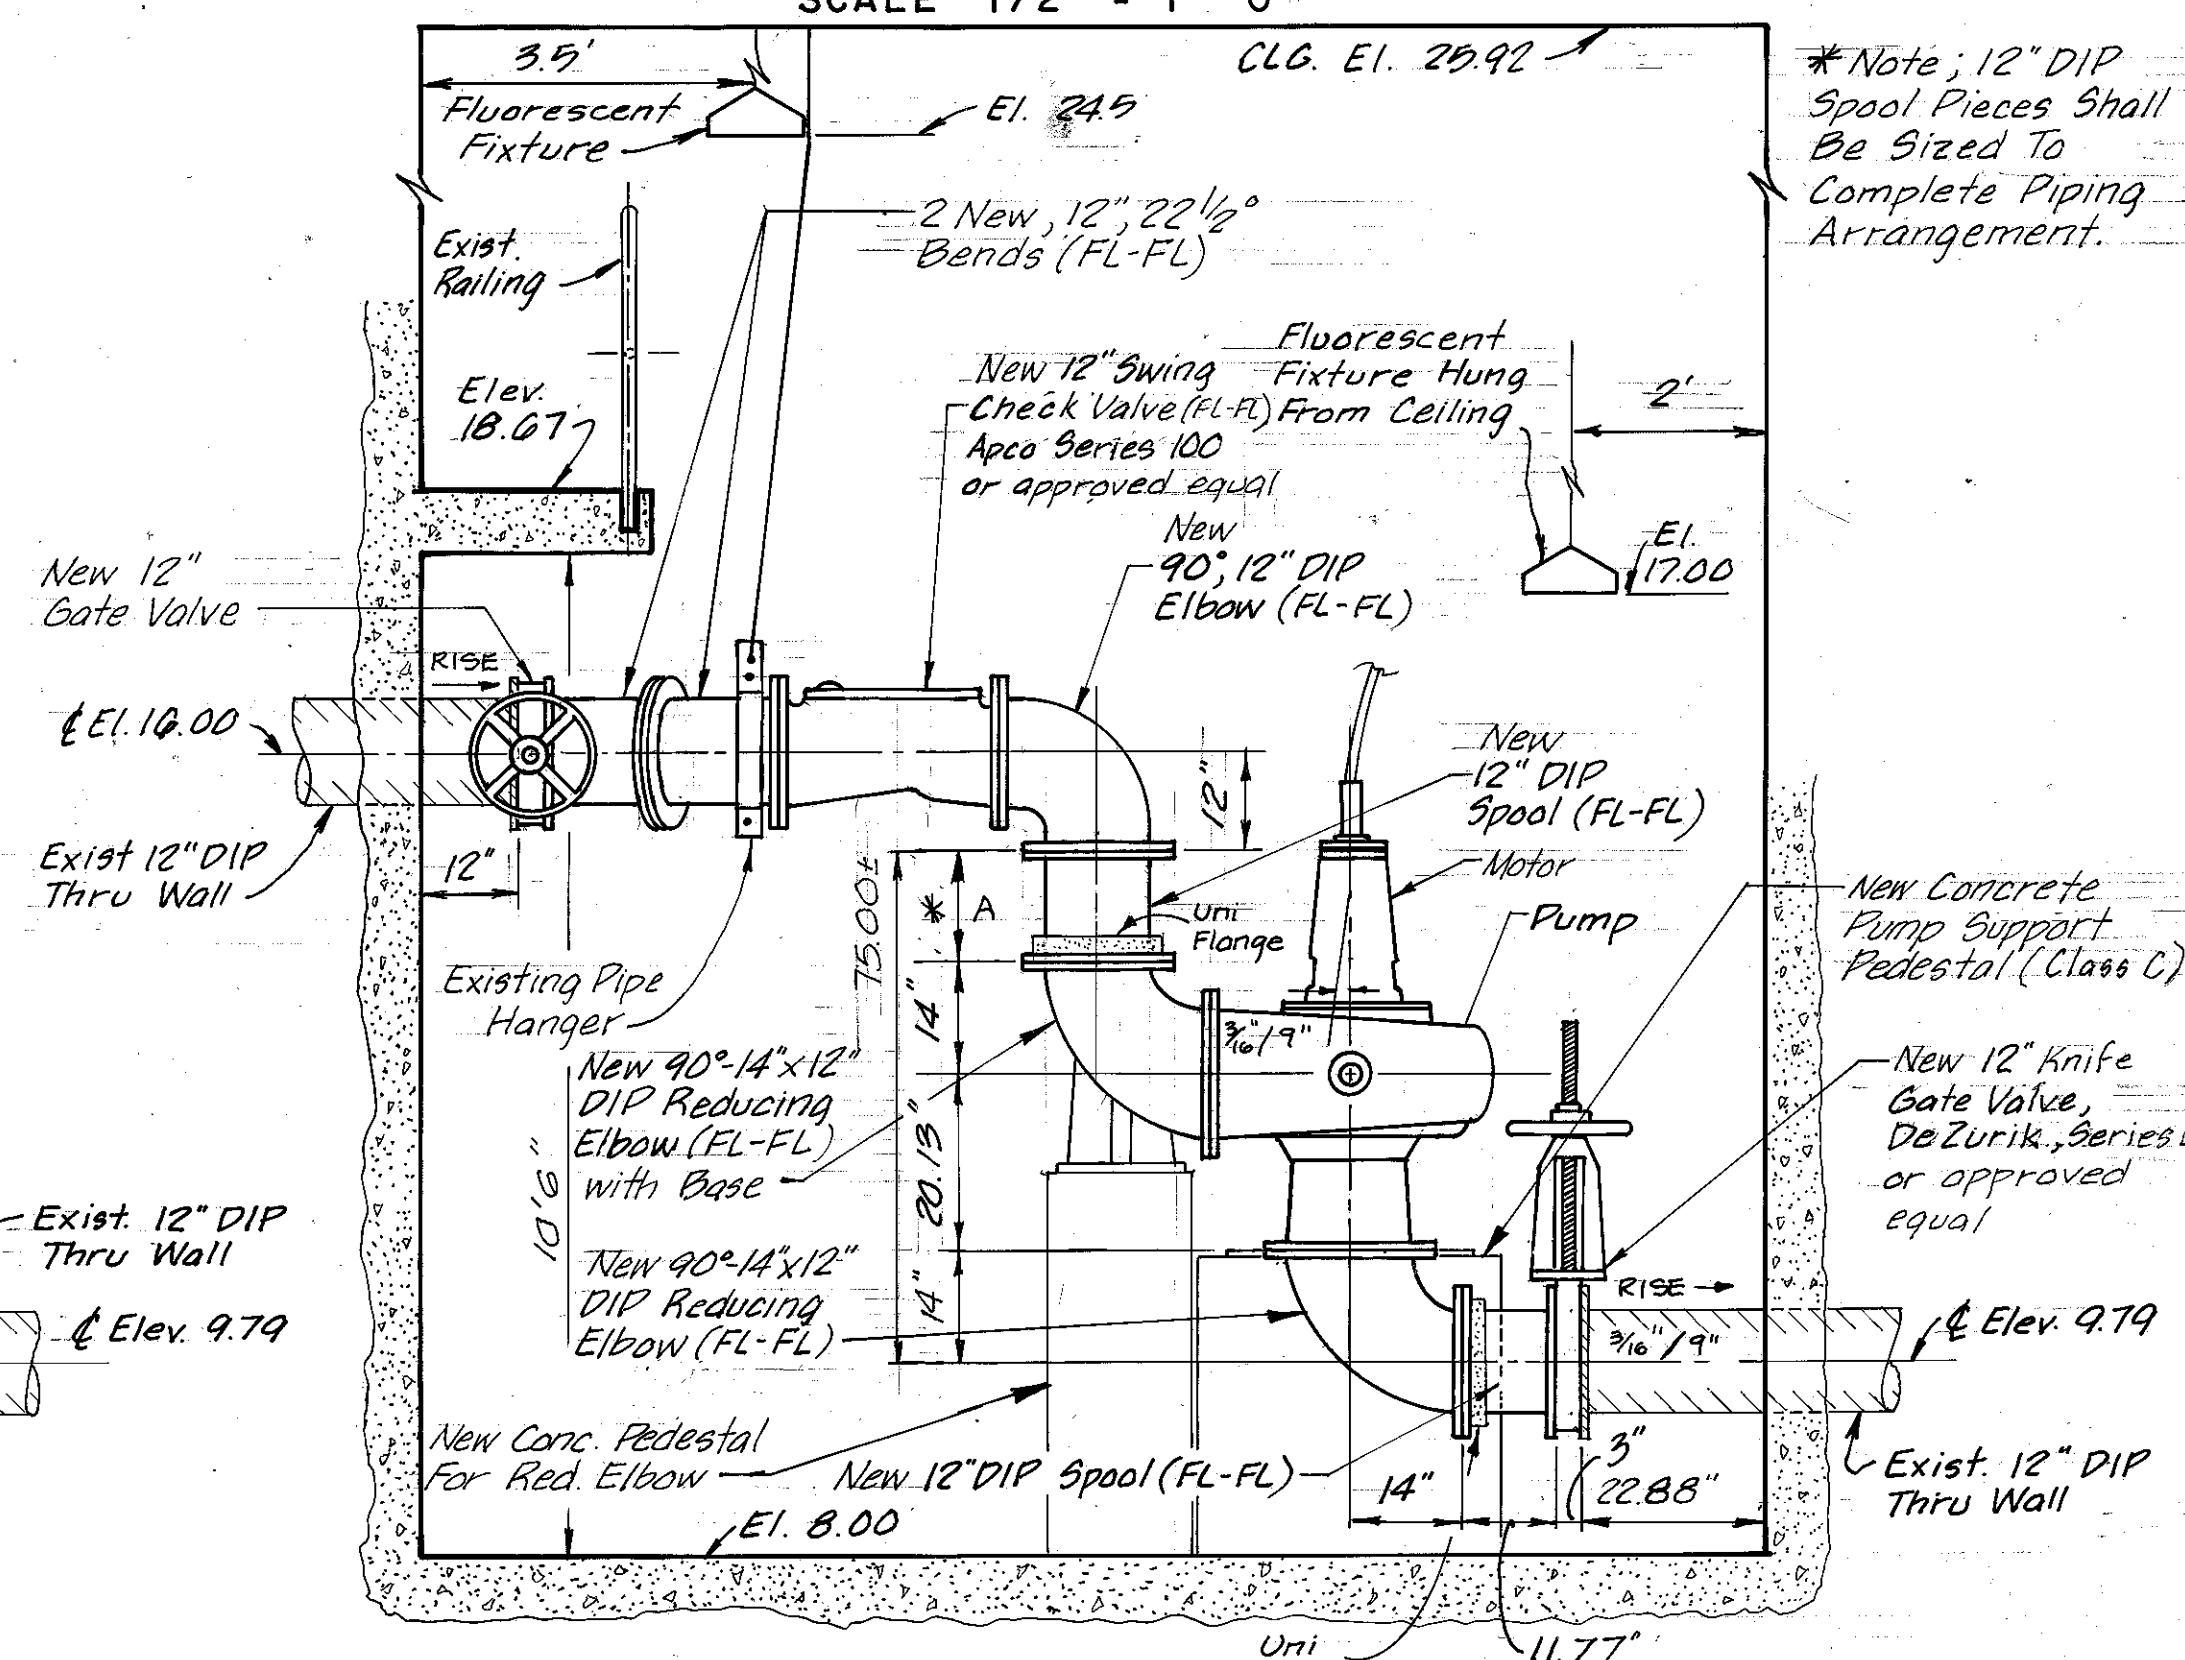 SCALE 1/2" - 1' 0"
3.5'
CLG. El. 25.92
* Note; 12" DIP
Spool Pieces Shall
Be Sized To
Complete Piping
Arrangement.
Fluorescent
Fixture
El. 24.5
2 New, 12", 22 1/2°
Bends (FL-FL)
Exist.
Railing
Elev.
18.67
New 12" Swing
Check Valve (FL-FL)
Apco Series 100
or approved equal
Fluorescent
Fixture Hung
From Ceiling
2'
New
90°, 12" DIP
Elbow (FL-FL)
El.
17.00
New 12"
Gate Valve
RISE
℄ El. 16.00
Exist 12" DIP
Thru Wall
12"
12"
New
12" DIP
Spool (FL-FL)
Motor
Pump
75.00±
* A
Uni
Flange
New Concrete
Pump Support
Pedestal (Class C)
Existing Pipe
Hanger
14"
3/16"/9"
New 90°-14"x12"
DIP Reducing
Elbow (FL-FL)
with Base
New 12" Knife
Gate Valve,
DeZurik, Series
or approved
equal
10'6"
20.13"
Exist. 12" DIP
Thru Wall
℄ Elev. 9.79
New 90°-14"x12"
DIP Reducing
Elbow (FL-FL)
14"
RISE
3/16"/9"
℄ Elev. 9.79
New Conc. Pedestal
For Red. Elbow
New 12" DIP Spool (FL-FL)
14"
3"
22.88"
Exist. 12" DIP
Thru Wall
El. 8.00
Uni
11.77"